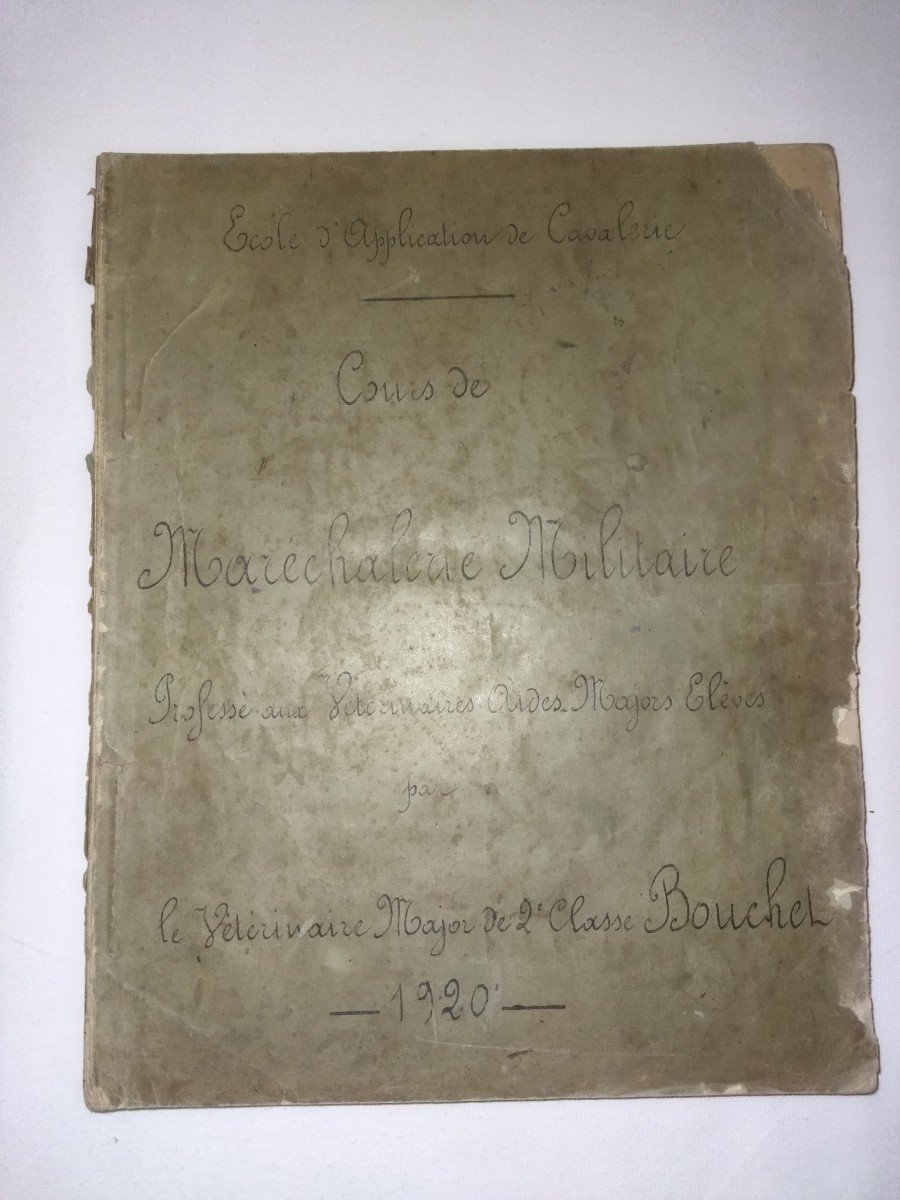 Ecole d'Application de Cavalerie
Cours de
Maréchalerie Militaire
Professé aux Vétérinaires Aides-Majors Elèves
par
le Vétérinaire Major de 2e Classe Bouchet
— 1920 —